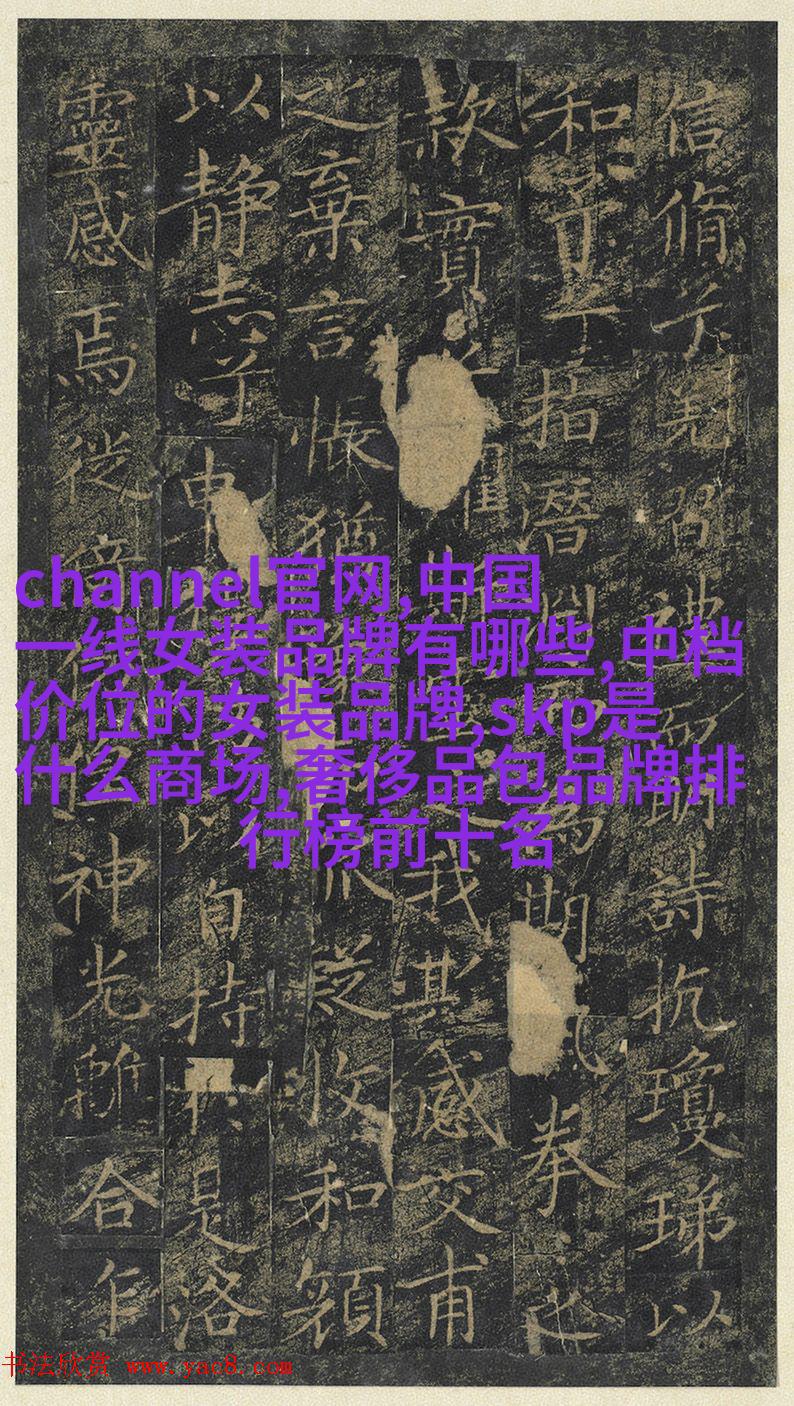 信脩兮羌習禮而明詩抗瓊珶以
和予兮指潛淵而為期拳之
款實之懼斯我其感交甫
之棄言悵猶狐疑收和顏
以静志兮申以自持於是洛
靈感焉徙倚神光離合乍
channel官网,中国
一线女装品牌有哪些,中档
价位的女装品牌,skp是
什么商场,奢侈品包品牌排
行榜前十名
书法欣赏 www.yac8.com